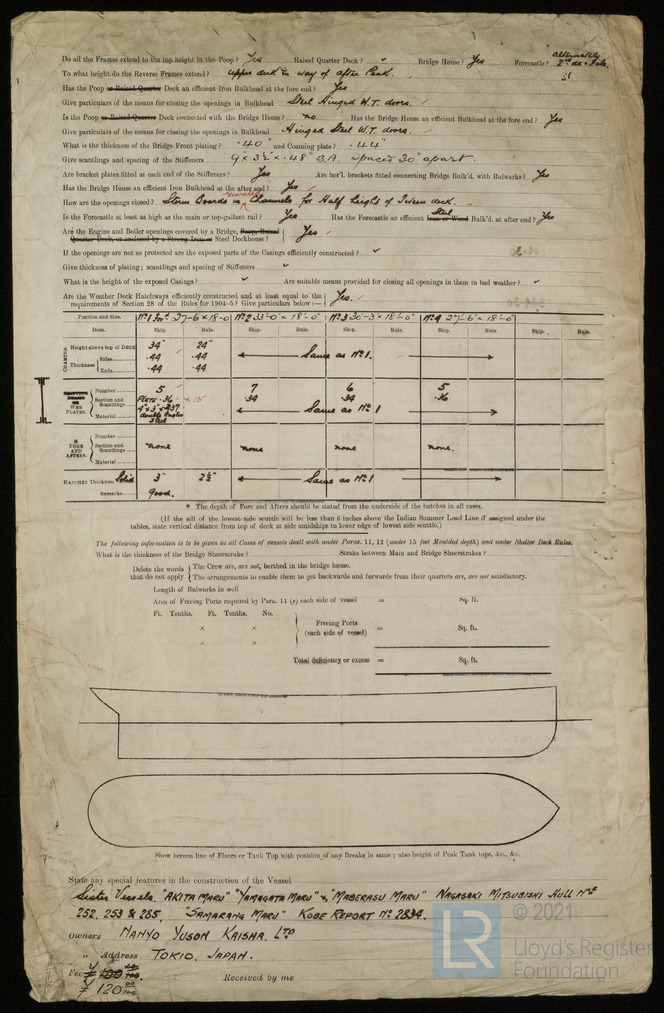 Do all the Frames extend to the top height in the Poop? Yes Raised Quarter Deck? ✓ Bridge House? Yes Forecastle? alternately 2nd dk & Fcle.
To what height do the Reverse Frames extend? upper deck in way of after Peak.
Has the Poop or Raised Quarter Deck an efficient Iron Bulkhead at the fore end? Yes
Give particulars of the means for closing the openings in Bulkhead Steel Hinged W.T. doors.
Is the Poop or Raised Quarter Deck connected with the Bridge House? no Has the Bridge House an efficient Bulkhead at the fore end? Yes
Give particulars of the means for closing the openings in Bulkhead Hinged Steel W.T. doors.
What is the thickness of the Bridge Front plating? .40" and Coaming plate? .44"
Give scantlings and spacing of the Stiffeners 9 × 3½" × .48" B.A. spaced 30" apart.
Are bracket plates fitted at each end of the Stiffeners? Yes Are hor'l. brackets fitted connecting Bridge Bulk'd. with Bulwarks? Yes
Has the Bridge House an efficient Iron Bulkhead at the after end? Yes
How are the openings closed? Storm Boards in Channels for Half height of Tween deck.
Is the Forecastle at least as high as the main or top-gallant rail? Yes Has the Forecastle an efficient Steel Iron or Wood Bulk'd. at after end? Yes
Are the Engine and Boiler openings covered by a Bridge, Poop, Raised
Quarter Deck, or enclosed by a Strong Iron or Steel Deckhouse? Yes
If the openings are not so protected are the exposed parts of the Casings efficiently constructed? ✓
Give thickness of plating; scantlings and spacing of Stiffeners ✓
What is the height of the exposed Casings? ✓ Are suitable means provided for closing all openings in them in bad weather? ✓
Are the Weather Deck Hatchways efficiently constructed and at least equal to the
requirements of Section 28 of the Rules for 1904-5? Give particulars below:— Yes.
Position and Size. Nº1 27-6 × 18-0 Nº2 33'-0" × 18'-0" Nº3 30-3 × 18'-0" Nº4 27'-6" × 18'-0"
Item. Ship. Rule. Ship. Rule. Ship. Rule. Ship. Rule. Ship. Rule.
COAMING. Height above top of DECK 34" 24"
Thickness Sides .44 .44 Same as Nº1.
Ends .44 .44
WEB PLATES. Number 5 7 6 5
Section and Scantlings Plate .36 × 15 .34 .34 .36
4" × 3" × .437 double Angles Same as Nº1
Material Steel
* FORE AND AFTERS. Number
Section and Scantlings none none none none.
Material
HATCHES Thickness Solid 3" 2½" Same as Nº1
Remarks Good.
* The depth of Fore and Afters should be stated from the underside of the hatches in all cases.
(If the sill of the lowest side scuttle will be less than 6 inches above the Indian Summer Load Line if assigned under the
tables, state vertical distance from top of deck at side amidships to lower edge of lowest side scuttle.)
The following information is to be given in all Cases of vessels dealt with under Paras. 11, 12 (under 15 feet Moulded depth) and under Shelter Deck Rules.
What is the thickness of the Bridge Sheerstrake? Strake between Main and Bridge Sheerstrakes?
Delete the words that do not apply
The Crew are, are not, berthed in the bridge house.
The arrangements to enable them to get backwards and forwards from their quarters are, are not satisfactory.
Length of Bulwarks in well
Area of Freeing Ports required by Para. 11 (e) each side of vessel = Sq. ft.
Ft. Tenths. Ft. Tenths. No.
× × Freeing Ports (each side of vessel) = Sq. ft.
× ×
Total deficiency or excess = Sq. ft.
Show hereon line of Floors or Tank Top with position of any Breaks in same; also height of Peak Tank tops, &c., &c.
State any special features in the construction of the Vessel
Sister Vessels "AKITA MARU" "YAMAGATA MARU" & "MABERASU MARU" NAGASAKI MITSUBISHI HULL Nos
252, 253 & 285, "SAMARANG MARU" KOBE REPORT Nº 2834.
Owners NANYO YUSON KAISHA, LTD
" Address TOKIO, JAPAN.
Fee ¥ 100 00/100 Received by me
¥ 120 00/100
LR © 2021
Lloyd's Register
Foundation